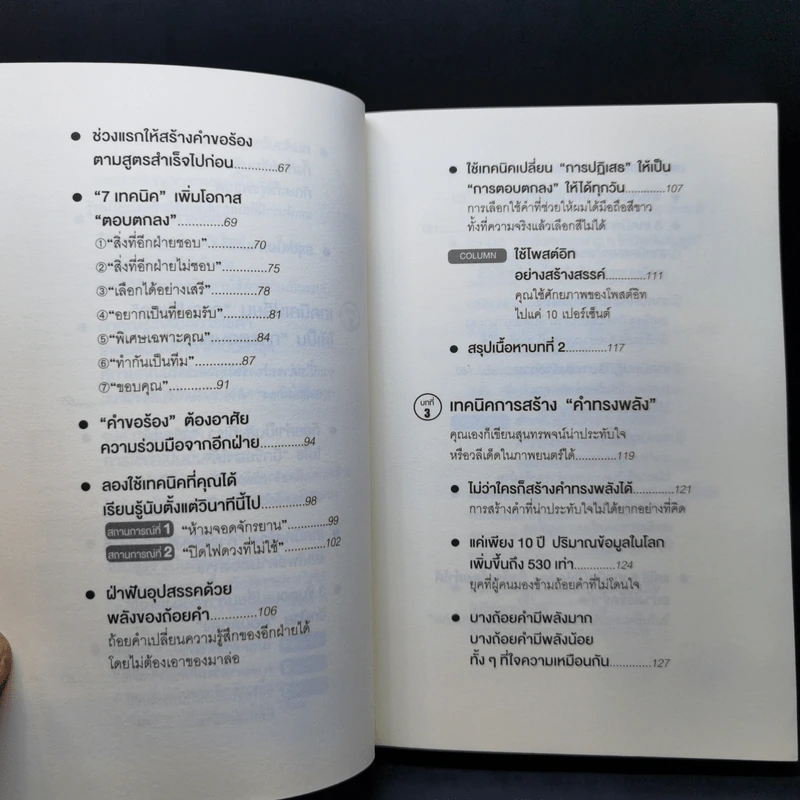 ● ช่วงแรกให้สร้างคำขอร้อง
ตามสูตรสำเร็จไปก่อน.............67
● “7 เทคนิค” เพิ่มโอกาส
“ตอบตกลง”.............69
①“สิ่งที่อีกฝ่ายชอบ”.............70
②“สิ่งที่อีกฝ่ายไม่ชอบ”.............75
③“เลือกได้อย่างเสรี”.............78
④“อยากเป็นที่ยอมรับ”.............81
⑤“พิเศษเฉพาะคุณ”.............84
⑥“ทำกันเป็นทีม”.............87
⑦“ขอบคุณ”.............91
● “คำขอร้อง” ต้องอาศัย
ความร่วมมือจากอีกฝ่าย.............94
● ลองใช้เทคนิคที่คุณได้
เรียนรู้นับตั้งแต่วินาทีนี้ไป.............98
สถานการณ์ที่ 1 “ห้ามจอดจักรยาน”.............99
สถานการณ์ที่ 2 “ปิดไฟดวงที่ไม่ใช้”.............102
● ฝ่าฟันอุปสรรคด้วย
พลังของถ้อยคำ.............106
ถ้อยคำเปลี่ยนความรู้สึกของอีกฝ่ายได้
โดยไม่ต้องเอาของมาล่อ
● ใช้เทคนิคเปลี่ยน “การปฏิเสธ” ให้เป็น
“การตอบตกลง” ให้ได้ทุกวัน.............107
การเลือกใช้คำที่ช่วยให้ผมได้มือถือสีขาว
ทั้งที่ความจริงแล้วเลือกสีไม่ได้
COLUMN ใช้โพสต์อิท
อย่างสร้างสรรค์.............111
คุณใช้ศักยภาพของโพสต์อิท
ไปแค่ 10 เปอร์เซ็นต์
● สรุปเนื้อหาบทที่ 2.............117
บทที่ 3 เทคนิคการสร้าง “คำทรงพลัง”
คุณเองก็เขียนสุนทรพจน์น่าประทับใจ
หรือวลีเด็ดในภาพยนตร์ได้.............119
● ไม่ว่าใครก็สร้างคำทรงพลังได้.............121
การสร้างคำที่น่าประทับใจไม่ได้ยากอย่างที่คิด
● แค่เพียง 10 ปี ปริมาณข้อมูลในโลก
เพิ่มขึ้นถึง 530 เท่า.............124
ยุคที่ผู้คนมองข้ามถ้อยคำที่ไม่โดนใจ
● บางถ้อยคำมีพลังมาก
บางถ้อยคำมีพลังน้อย
ทั้ง ๆ ที่ใจความเหมือนกัน.............127